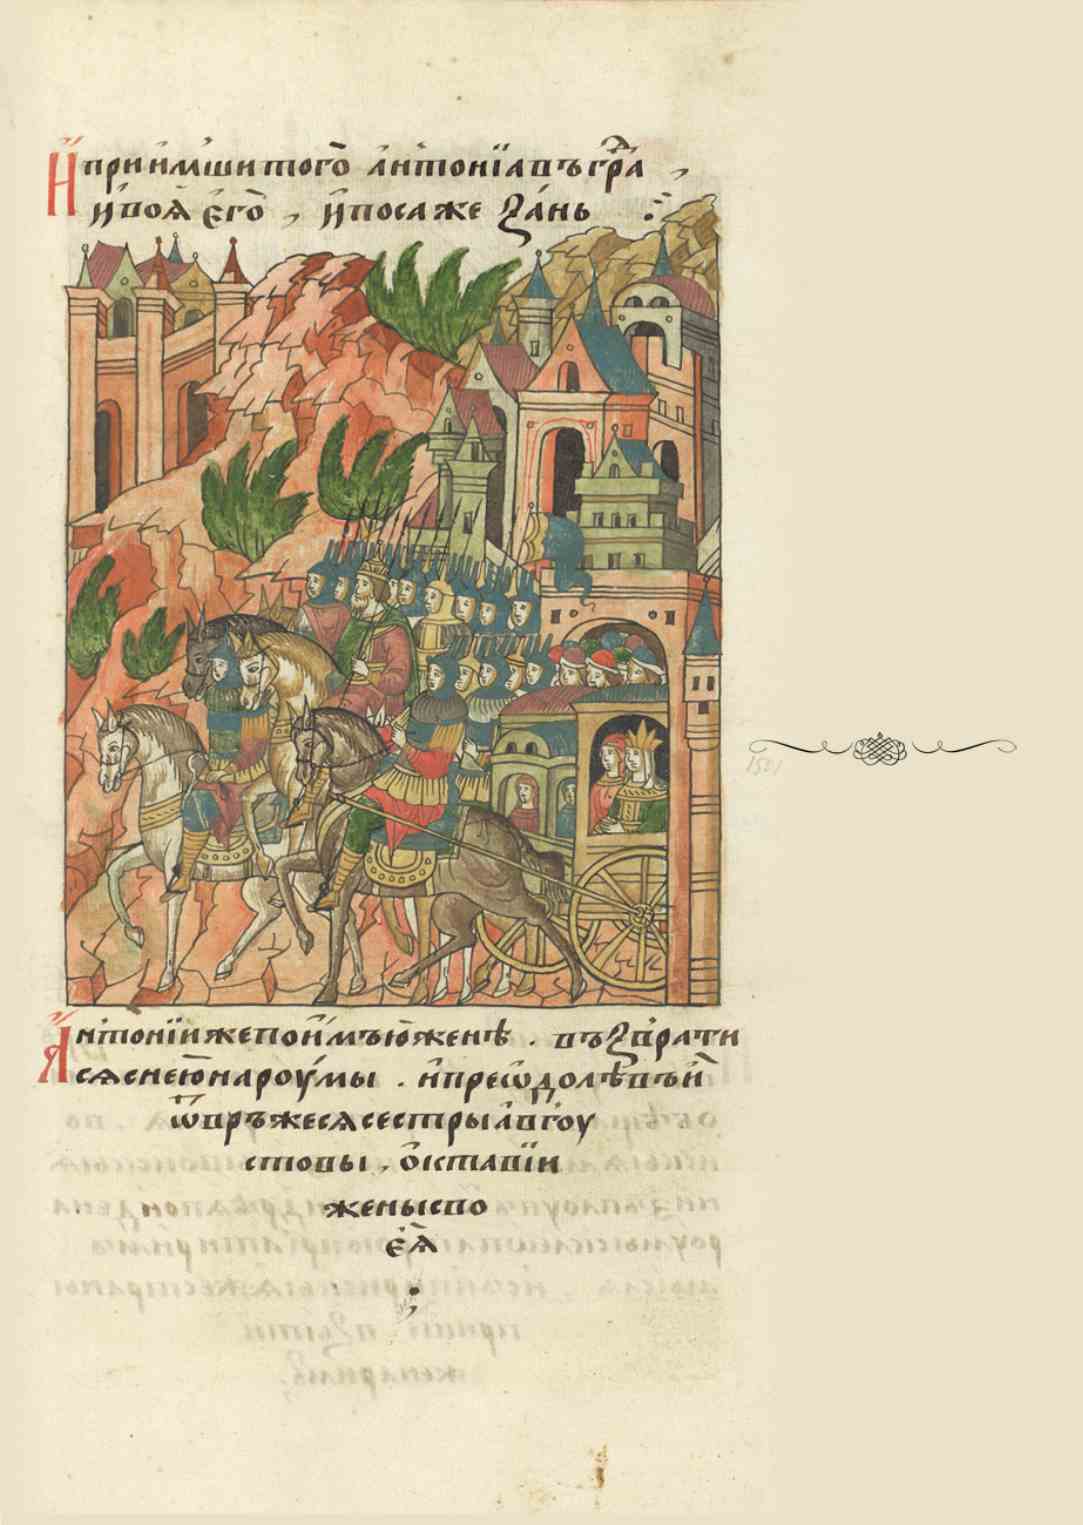 И҆приимши того̀ а҆нтонїа въ гра́
и҆ воѧ̀ є҆го̀, и҆ посаже за́нь
А҆нтонїи же пои́мъ ю҆ женѣ̀. въ звра́ти
сѧ с нею̀ на роу́мы. и҆ прео҆долѣ̀въ и҆
ѿвръжесѧ сестры а҆вгоу́
стовы, о҆ктавїи
жены сво
єѧ̀
1501